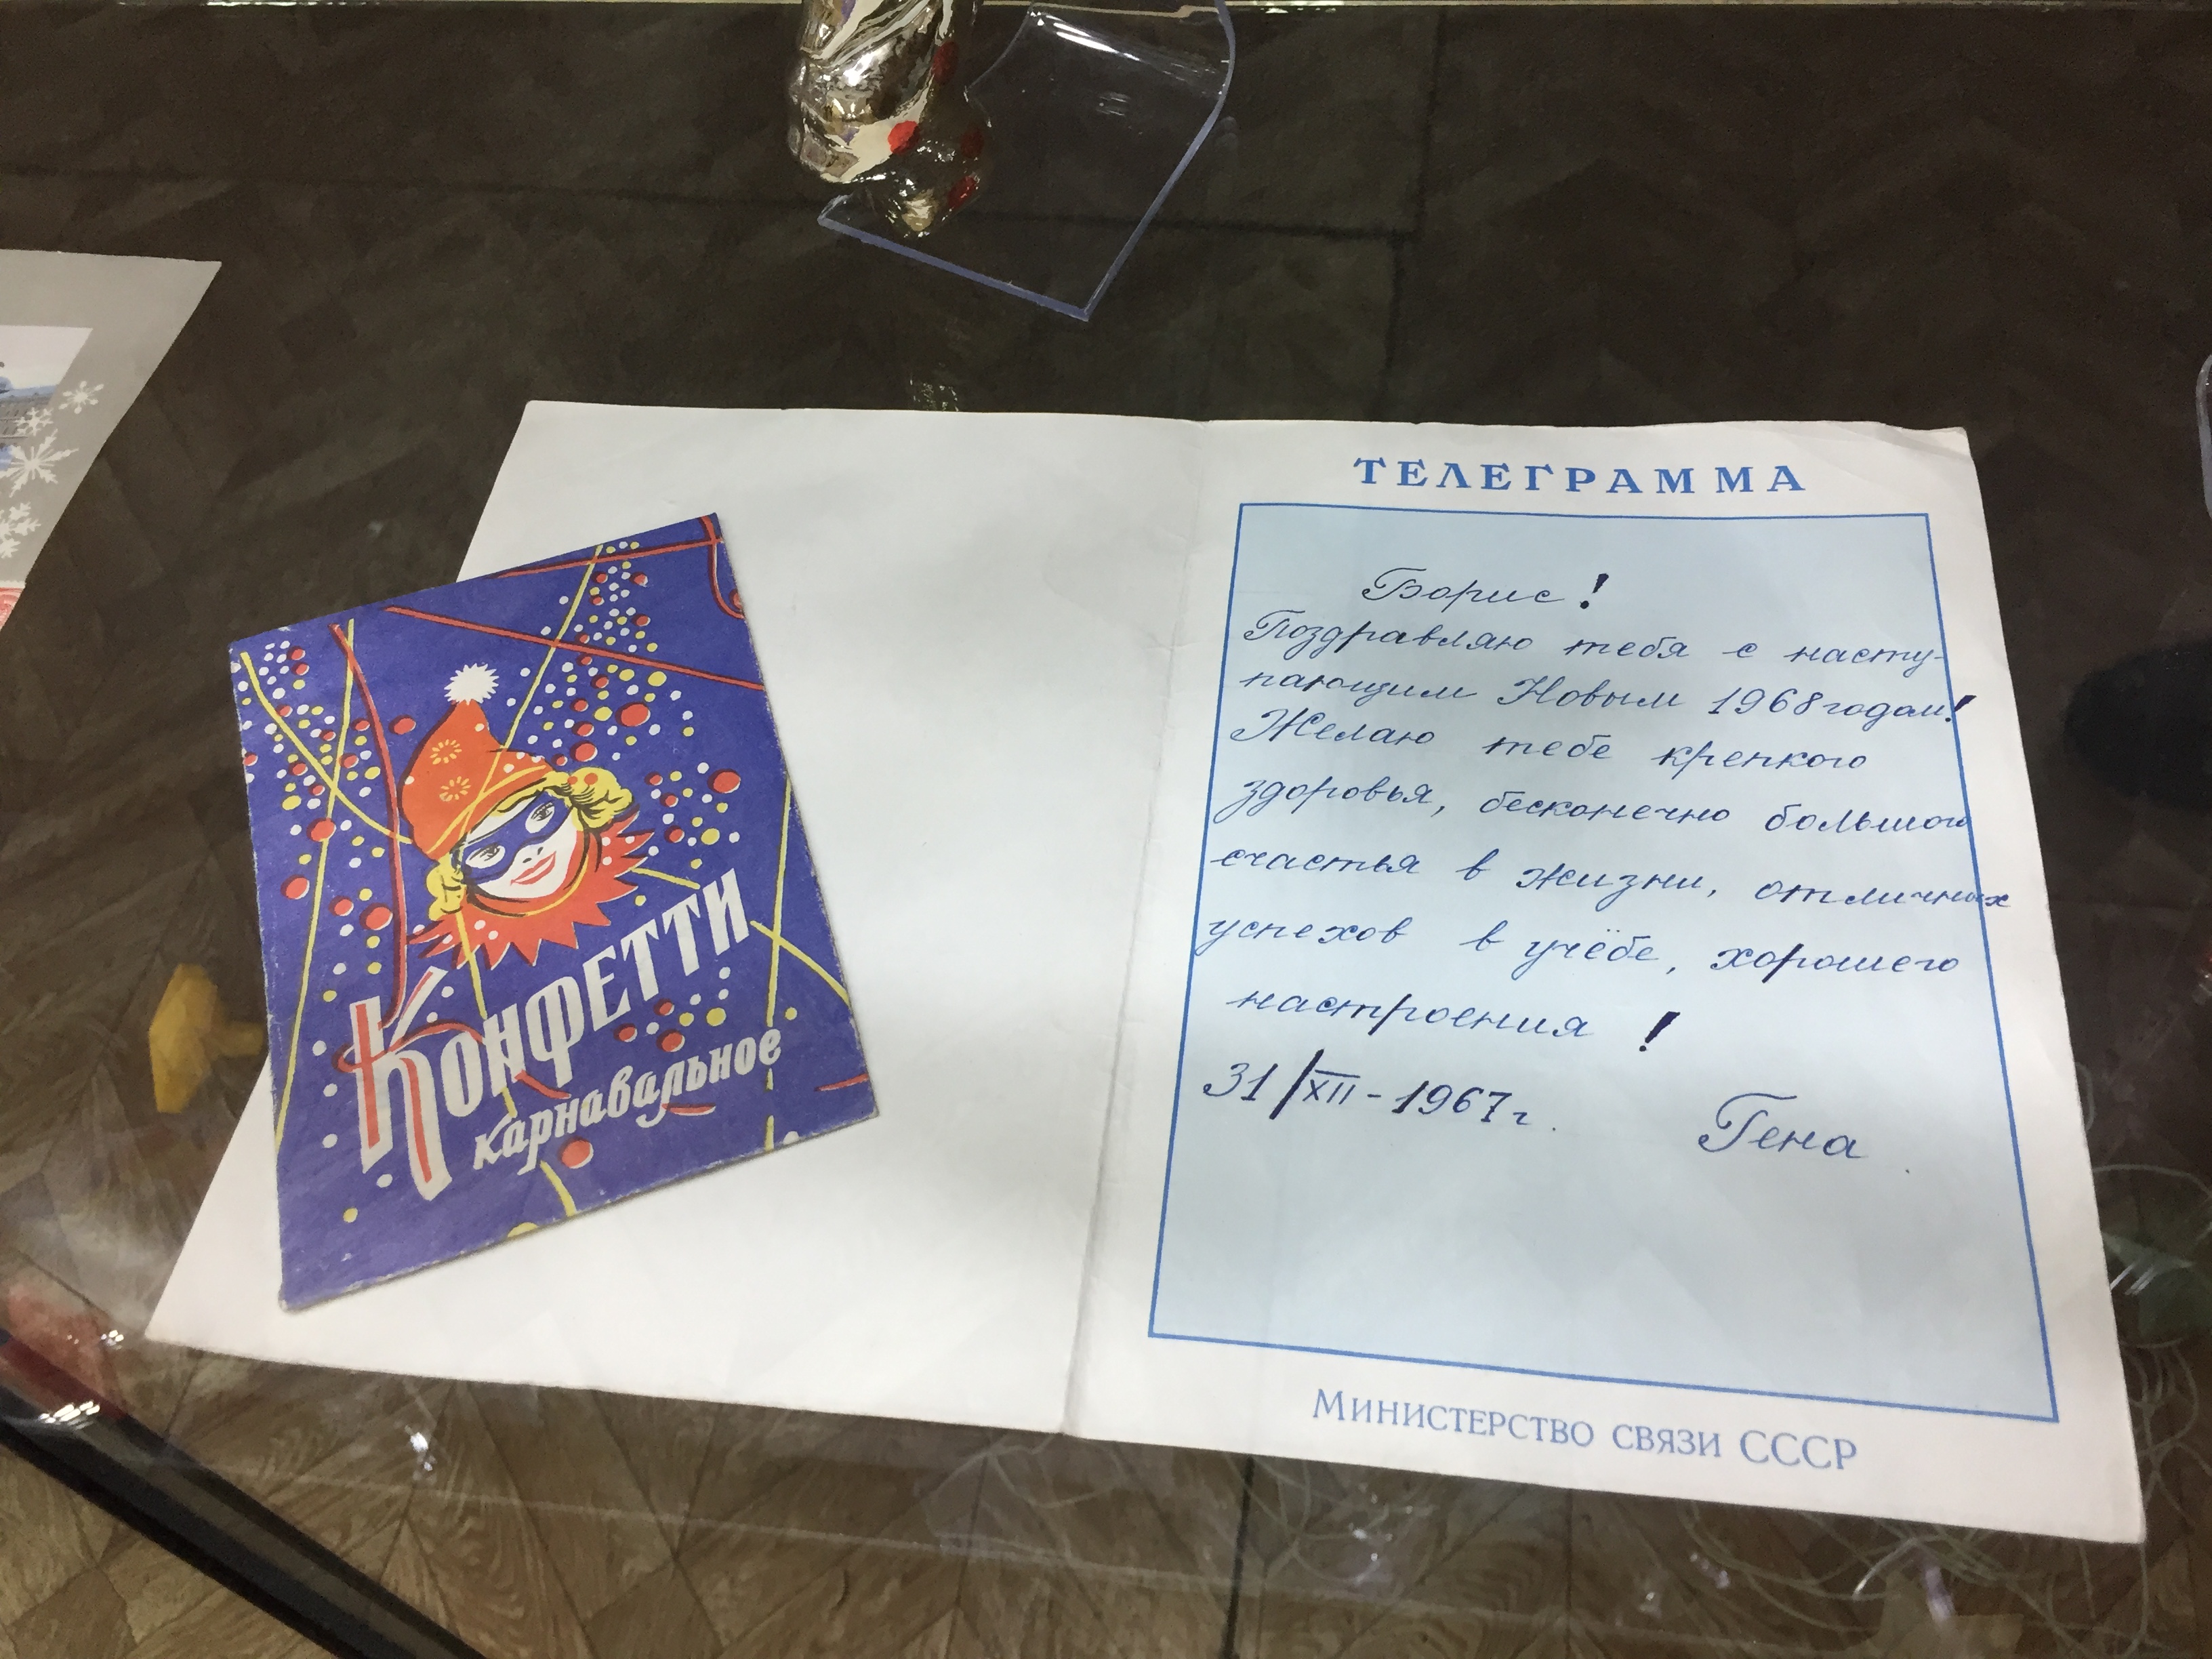 Конфетти
карнавальное
ТЕЛЕГРАММА
Борис!
Поздравляю тебя с насту-
пающим Новым 1968 годом!
Желаю тебе крепкого
здоровья, бесконечно большого
счастья в жизни, отличных
успехов в учёбе, хорошего
настроения!
31/XII-1967г.
Гена
Министерство связи СССР